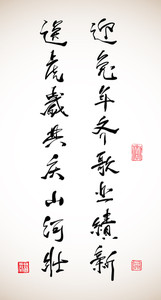 迎兔年齐歌业績新
送虎歲共庆山河壯